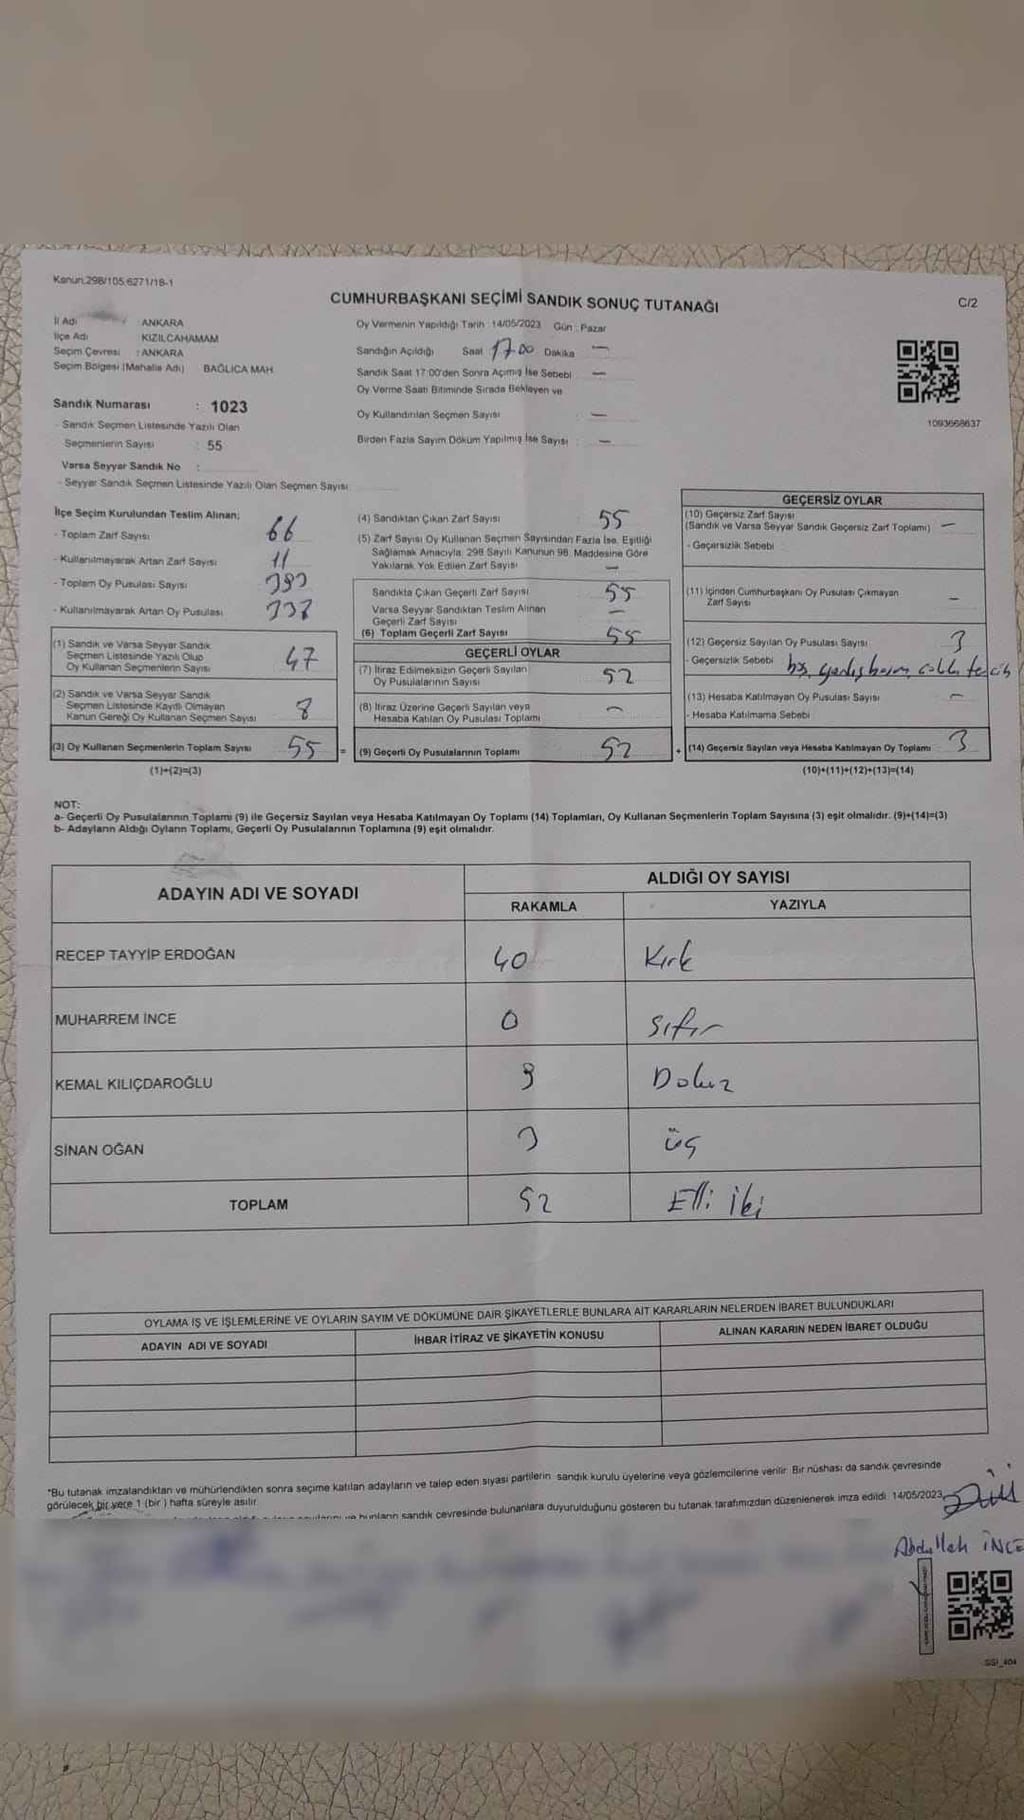 Kanun:298/105,6271/18-1
CUMHURBAŞKANI SEÇİMİ SANDIK SONUÇ TUTANAĞI
C/2
İl Adı : ANKARA
İlçe Adı : KIZILCAHAMAM
Seçim Çevresi : ANKARA
Seçim Bölgesi (Mahalle Adı) BAĞLICA MAH.
Sandık Numarası : 1023
- Sandık Seçmen Listesinde Yazılı Olan
Seçmenlerin Sayısı : 55
Varsa Seyyar Sandık No :
- Seyyar Sandık Seçmen Listesinde Yazılı Olan Seçmen Sayısı
Oy Vermenin Yapıldığı Tarih : 14/05/2023 Gün : Pazar
Sandığın Açıldığı Saat 17:00 Dakika —
Sandık Saat 17:00'den Sonra Açılmış İse Sebebi —
Oy Verme Saati Bitiminde Sırada Bekleyen ve
Oy Kullandırılan Seçmen Sayısı : —
Birden Fazla Sayım Döküm Yapılmış İse Sayısı : —
1093668637
İlçe Seçim Kurulundan Teslim Alınan;
- Toplam Zarf Sayısı 66
- Kullanılmayarak Artan Zarf Sayısı 11
- Toplam Oy Pusulası Sayısı
- Kullanılmayarak Artan Oy Pusulası
(1) Sandık ve Varsa Seyyar Sandık
Seçmen Listesinde Yazılı Olup
Oy Kullanan Seçmenlerin Sayısı 47
(2) Sandık ve Varsa Seyyar Sandık
Seçmen Listesinde Kaydı Olmayan
Kanun Gereği Oy Kullanan Seçmen Sayısı 8
(3) Oy Kullanan Seçmenlerin Toplam Sayısı 55 =
(1)+(2)=(3)
(4) Sandıktan Çıkan Zarf Sayısı 55
(5) Zarf Sayısı Oy Kullanan Seçmen Sayısından Fazla İse, Eşitliği
Sağlamak Amacıyla, 298 Sayılı Kanunun 98. Maddesine Göre
Yakılarak Yok Edilen Zarf Sayısı —
Sandıkta Çıkan Geçerli Zarf Sayısı 55
Varsa Seyyar Sandıktan Teslim Alınan
Geçerli Zarf Sayısı —
(6) Toplam Geçerli Zarf Sayısı 55
GEÇERLİ OYLAR
(7) İtiraz Edilmeksizin Geçerli Sayılan
Oy Pusulalarının Sayısı 52
(8) İtiraz Üzerine Geçerli Sayılan veya
Hesaba Katılan Oy Pusulası Toplamı —
(9) Geçerli Oy Pusulalarının Toplamı 52 +
GEÇERSİZ OYLAR
(10) Geçersiz Zarf Sayısı
(Sandık ve Varsa Seyyar Sandık Geçersiz Zarf Toplamı) —
- Geçersizlik Sebebi :
(11) İçinden Cumhurbaşkanı Oy Pusulası Çıkmayan
Zarf Sayısı —
(12) Geçersiz Sayılan Oy Pusulası Sayısı 3
- Geçersizlik Sebebi
(13) Hesaba Katılmayan Oy Pusulası Sayısı —
- Hesaba Katılmama Sebebi
(14) Geçersiz Sayılan veya Hesaba Katılmayan Oy Toplamı 3
(10)+(11)+(12)+(13)=(14)
NOT:
a- Geçerli Oy Pusulalarının Toplamı (9) ile Geçersiz Sayılan veya Hesaba Katılmayan Oy Toplamı (14) Toplamları, Oy Kullanan Seçmenlerin Toplam Sayısına (3) eşit olmalıdır. (9)+(14)=(3)
b- Adayların Aldığı Oyların Toplamı, Geçerli Oy Pusulalarının Toplamına (9) eşit olmalıdır.
ADAYIN ADI VE SOYADI
ALDIĞI OY SAYISI
RAKAMLA YAZIYLA
RECEP TAYYİP ERDOĞAN 40 Kırk
MUHARREM İNCE 0 Sıfır
KEMAL KILIÇDAROĞLU 9 Dokuz
SİNAN OĞAN 3 üç
TOPLAM 52 Elli iki
OYLAMA İŞ VE İŞLEMLERİNE VE OYLARIN SAYIM VE DÖKÜMÜNE DAİR ŞİKAYETLERLE BUNLARA AİT KARARLARIN NELERDEN İBARET BULUNDUKLARI
ADAYIN ADI VE SOYADI İHBAR İTİRAZ VE ŞİKAYETİN KONUSU ALINAN KARARIN NEDEN İBARET OLDUĞU
*Bu tutanak imzalandıktan ve mühürlendikten sonra seçime katılan adayların ve talep eden siyasi partilerin sandık kurulu üyelerine veya gözlemcilerine verilir. Bir nüshası da sandık çevresinde
görülecek bir yere 1 (bir) hafta süreyle asılır.
ve bunların sandık çevresinde bulunanlara duyurulduğunu gösteren bu tutanak tarafımızdan düzenlenerek imza edildi. 14/05/2023
Abdullah İNCE
SSI_404